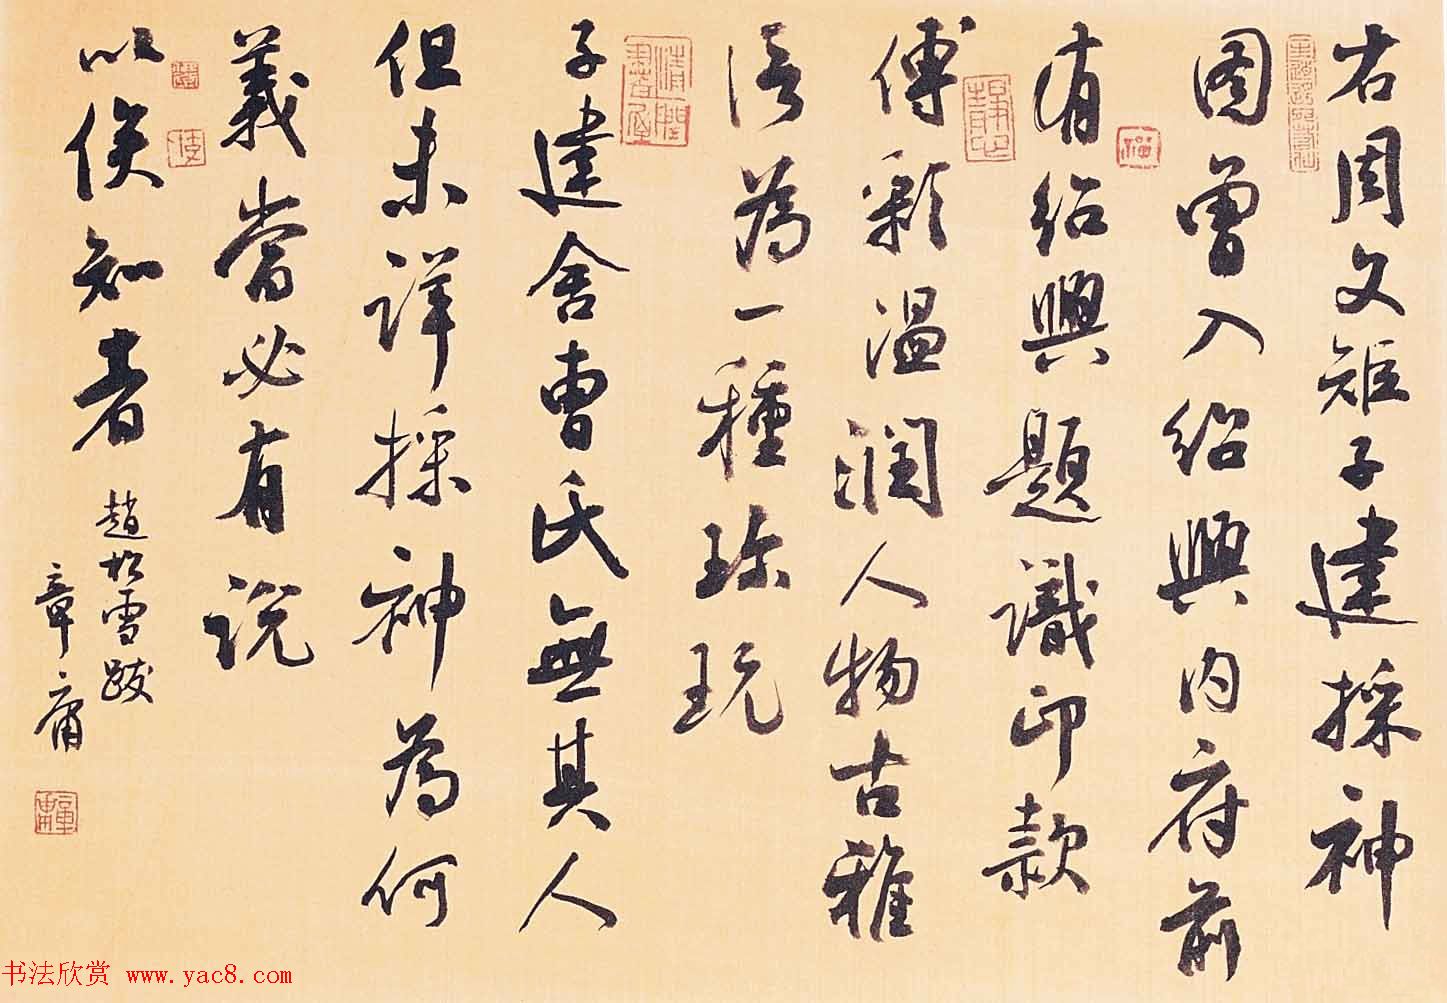 右周文矩子建採神
图曾入紹興内府前
有紹興題識印款
傅彩温潤人物古雅
信為一種珍玩
子建舍曹氏無其人
但未詳採神為何
義當必有說
以俟知者
趙松雪跋
章庸
书法欣赏 www.yac8.com